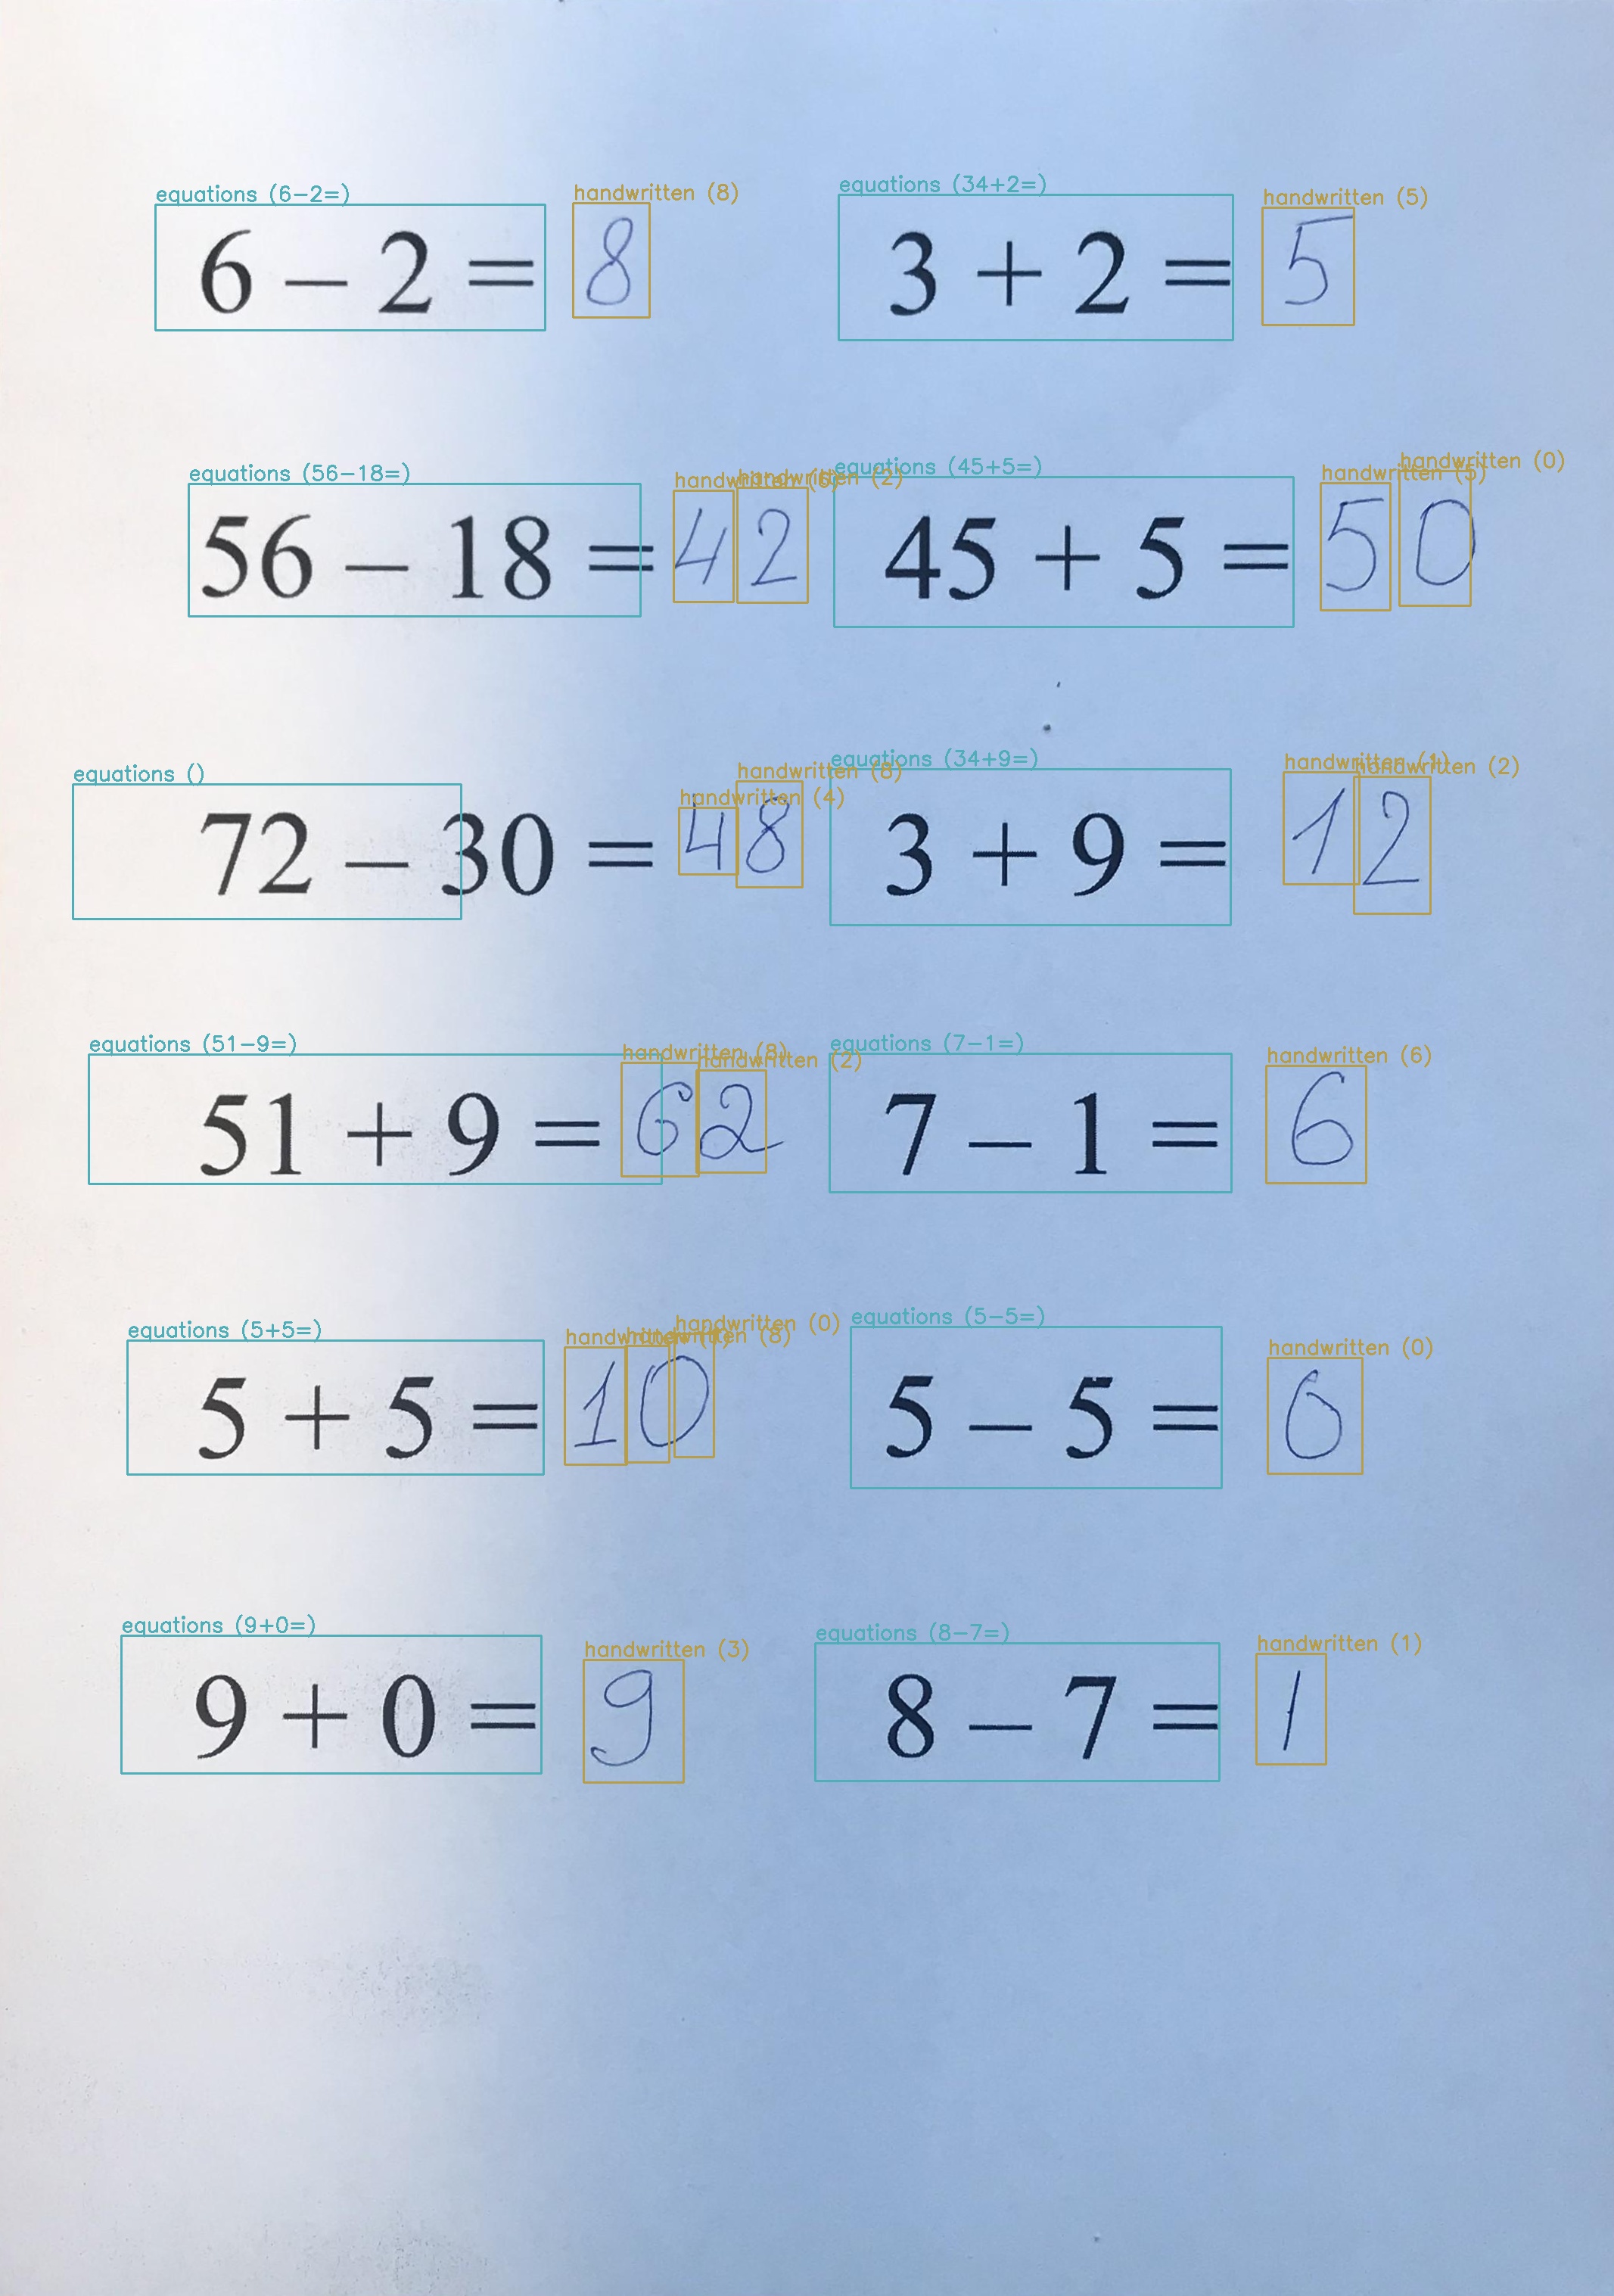 equations (6-2=) handwritten (8) equations (34+2=) handwritten (5)
6 – 2 = 8 3 + 2 = 5
equations (56-18=) handwritten (6) handwritten (2) equations (45+5=) handwritten (5) handwritten (0)
56 – 18 = 42 45 + 5 = 50
equations () handwritten (4) handwritten (8) equations (34+9=) handwritten (1) handwritten (2)
72 – 30 = 48 3 + 9 = 12
equations (51-9=) handwritten (8) handwritten (2) equations (7-1=) handwritten (6)
51 + 9 = 62 7 – 1 = 6
equations (5+5=) handwritten handwritten (8) handwritten (0) equations (5-5=) handwritten (0)
5 + 5 = 10 5 – 5 = 0
equations (9+0=) handwritten (3) equations (8-7=) handwritten (1)
9 + 0 = 9 8 – 7 = 1